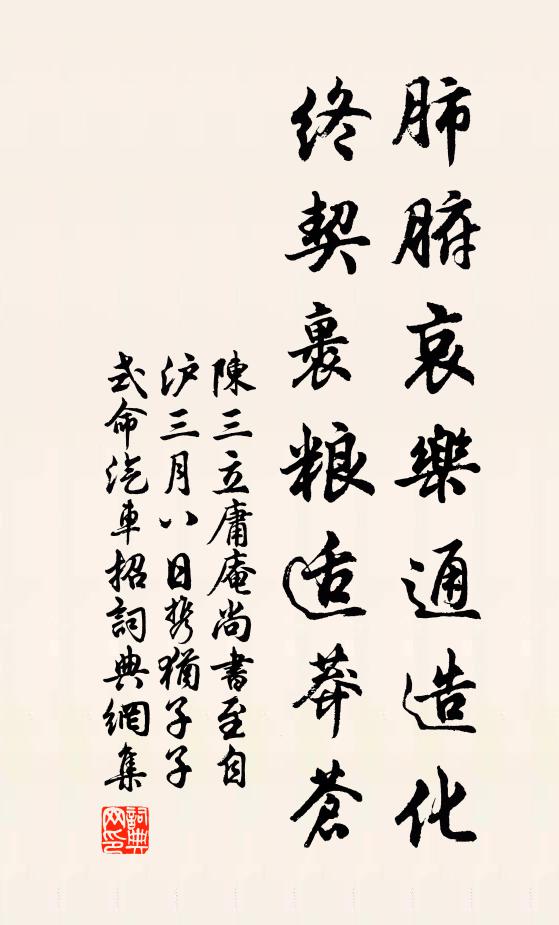 肺腑哀樂通造化
終契裹粮适莽蒼
陳三立庸庵尚書至自
沪三月八日携猶子子
式命汽車招詞典網集
詞典網印